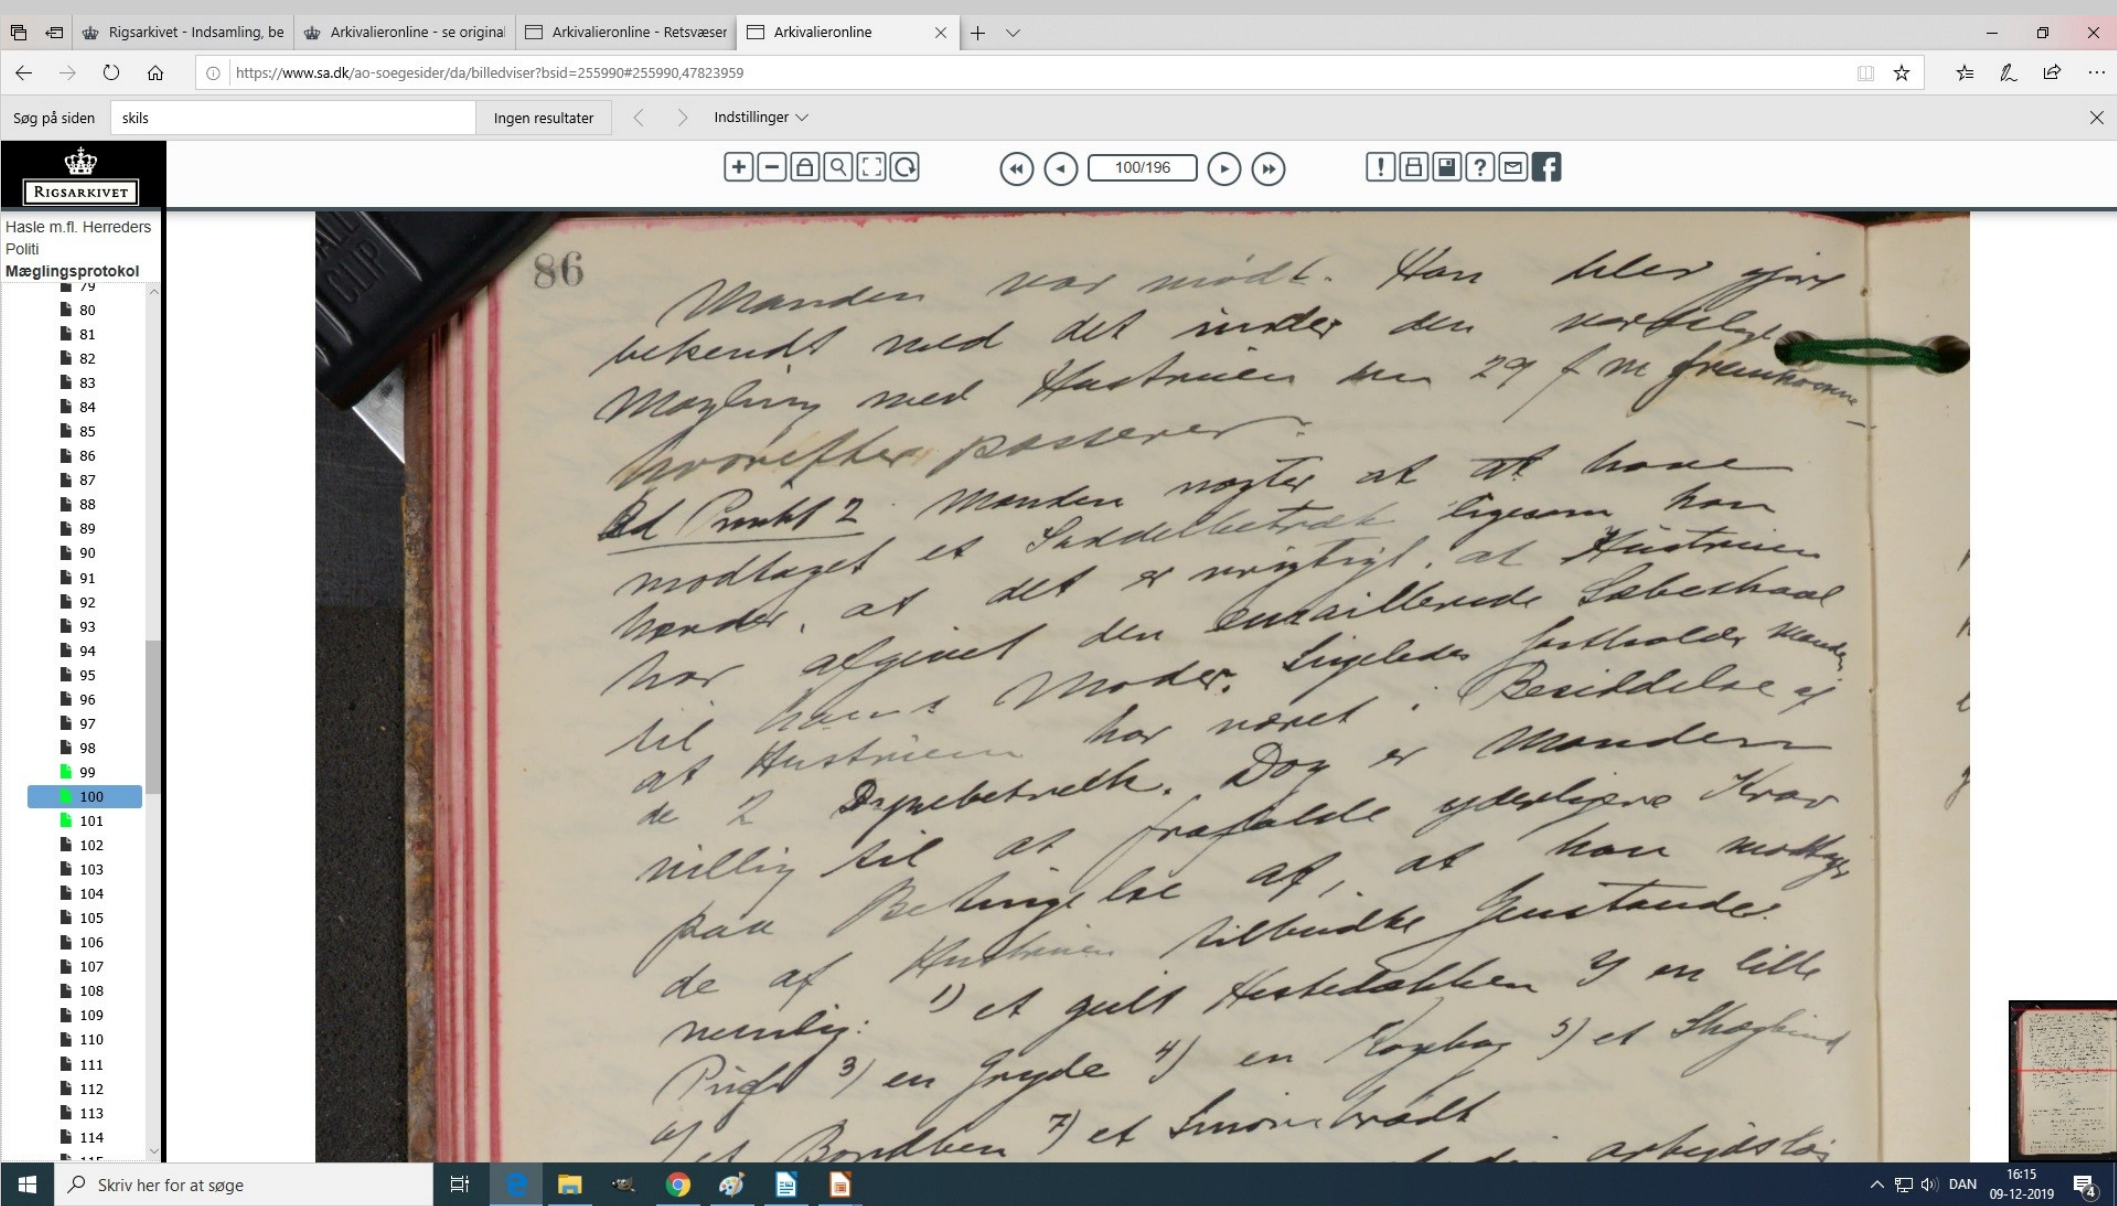 Rigsarkivet - Indsamling, be
Arkivalieronline - se original
Arkivalieronline - Retsvæser
Arkivalieronline
https://www.sa.dk/ao-soegesider/da/billedviser?bsid=255990#255990,47823959
Søg på siden
skils
Ingen resultater
Indstillinger
RIGSARKIVET
100/196
Hasle m.fl. Herreders
Politi
Mæglingsprotokol
79
80
81
82
83
84
85
86
87
88
89
90
91
92
93
94
95
96
97
98
99
100
101
102
103
104
105
106
107
108
109
110
111
112
113
114
115
CLIP
86
Manden var mødt. Han blev gjort
bekendt med det under den
Mægling med Hustruen den 29 f m fremkomne
hvorefter passerer.
Ad Punkt 2. Manden nægter at at have
modtaget et Saddelbetræk ligesom han
hævder, at det er urigtigt, at Hustruen
har afgivet den emaillerede Sæbeskaal
til hans Moder. Ligeledes fastholder Manden
at Hustruen har været i Besiddelse af
de 2 Dynebetræk. Dog er Manden
villig til at frafalde yderligere Krav
paa Betingelse af, at han modtager
de af Hustruen tilbudte Genstande
nemlig: 1) et gult Hestedækken 2) en lille
3) en Gryde 4) en Kogebog 5) et
et 7) et Smørebrædt
16:15
Skriv her for at søge
DAN
09-12-2019
4